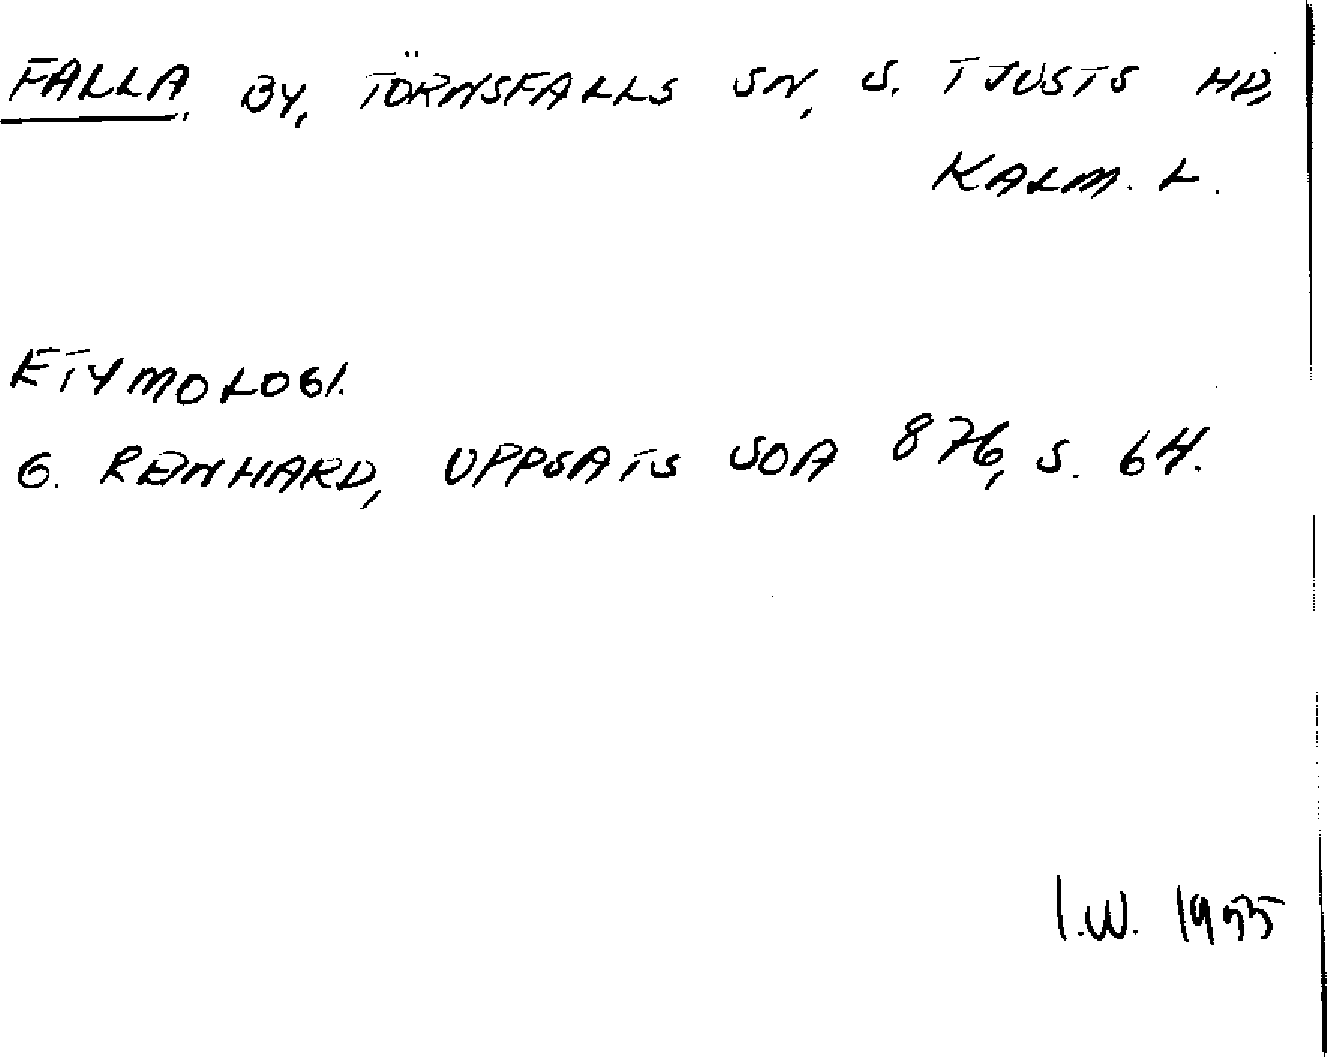 FALLA. BY, TÖRNSFALLS SN, S. TJUSTS HD,
KALM. L.
ETYMOLOGI.
G. RENHARD, UPPSATS SOA 876, S. 64.
I.W. 1955